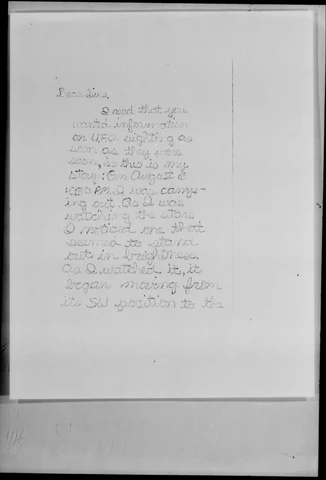 Dear Sirs,
I read that you
wanted information
on UFO sighting as
soon as they were
seen, so this is my
story: On August 8
PM, I was camp-
ing out. As I was
watching the stars
I noticed one that
seemed to stand
out in brightness.
As I watched it, it
began moving from
its SW position to the